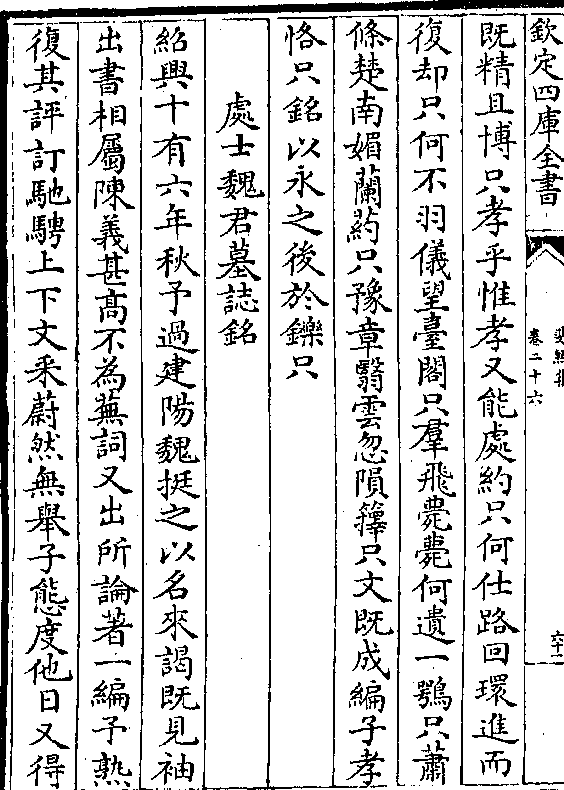 欽定四庫全書
卷二十六
六十二
既精且博只孝乎惟孝又能處約只何仕路回環進而
復却只何不羽儀望臺閣只羣飛甍甍何遺一鶚只蕭
條楚南媚蘭葯只豫章翳雲忽隕籜只文既成編子孝
恪只銘以永之後於鑠只
處士魏君墓誌銘
紹興十有六年秋予過建陽魏挺之以名來謁既見袖
出書相屬陳義甚髙不為蕪詞又出所論著一編予熟
復其評訂馳騁上下文采蔚然無舉子態度他日又得